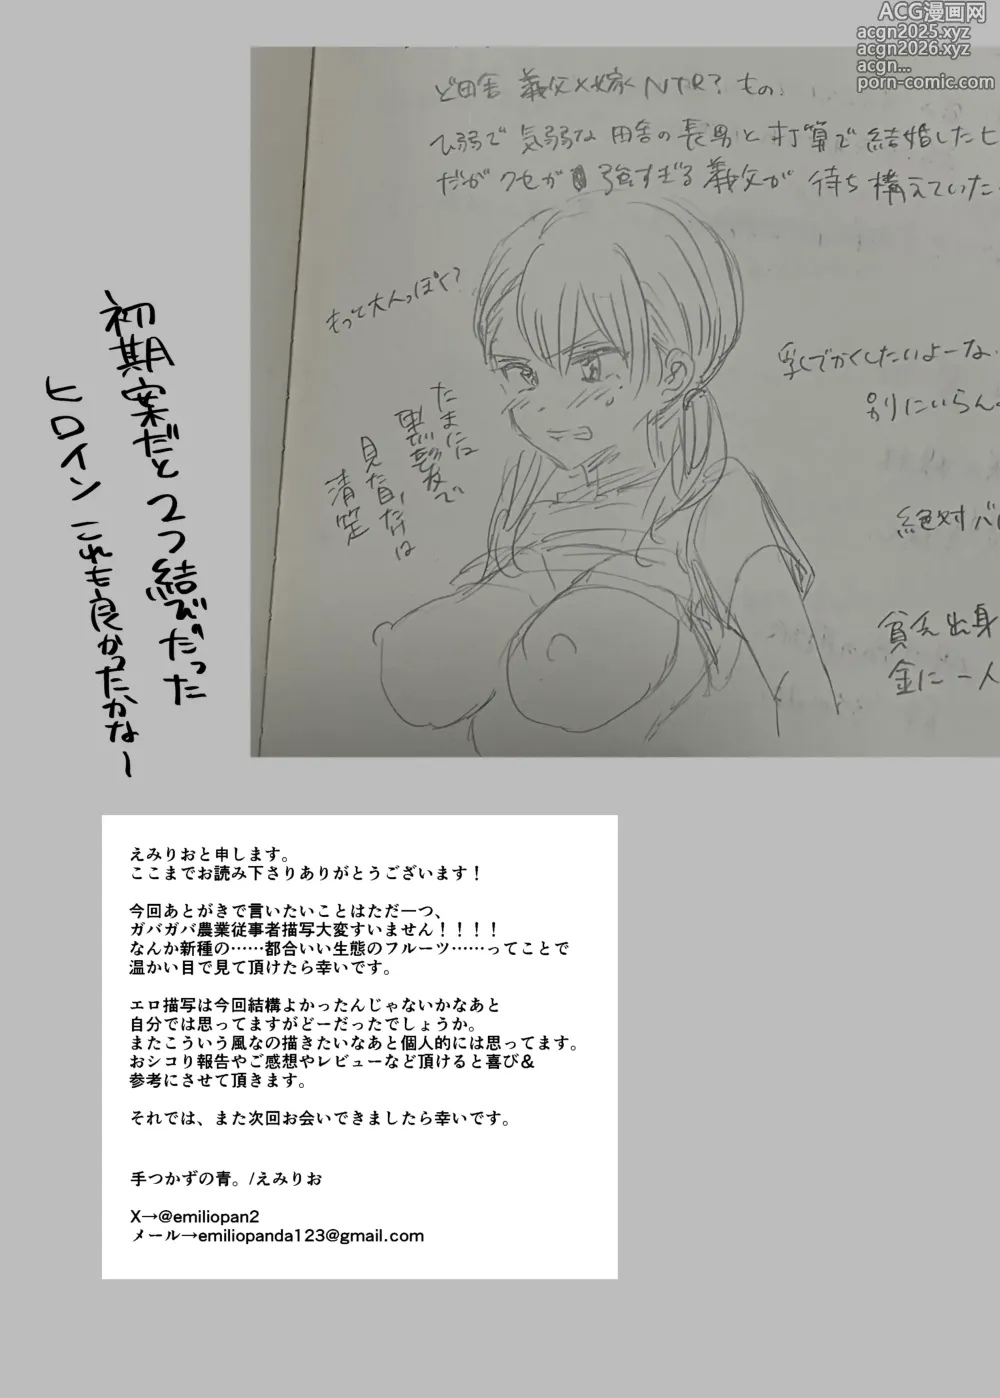 ACG漫画网
acgn2025.xyz
acgn2026.xyz
acgn...
porn-comic.com
ど田舎 義父×嫁 NTR? もの
ひ弱で 気弱な 田舎の長男と 打算で 結婚したヒ
だが クセが 強すぎる 義父が 待ち構えていた
もっと大人っぽく?
乳でかくしたいよーな
別にいらん
たまには
黒髪で
見た目だけは
清楚
絶対バ
貧乏出身
金に一人
初期案だと2つ結びだった
ヒロイン これも良かったかなー
えみりおと申します。
ここまでお読み下さりありがとうございます！
今回あとがきで言いたいことはただ一つ、
ガバガバ農業従事者描写大変すいません！！！！
なんか新種の……都合いい生態のフルーツ……ってことで
温かい目で見て頂けたら幸いです。
エロ描写は今回結構よかったんじゃないかなあと
自分では思ってますがどーだったでしょうか。
またこういう風なの描きたいなあと個人的には思ってます。
おシコり報告やご感想やレビューなど頂けると喜び＆
参考にさせて頂きます。
それでは、また次回お会いできましたら幸いです。
手つかずの青。/えみりお
X→@emiliopan2
メール→emiliopanda123@gmail.com